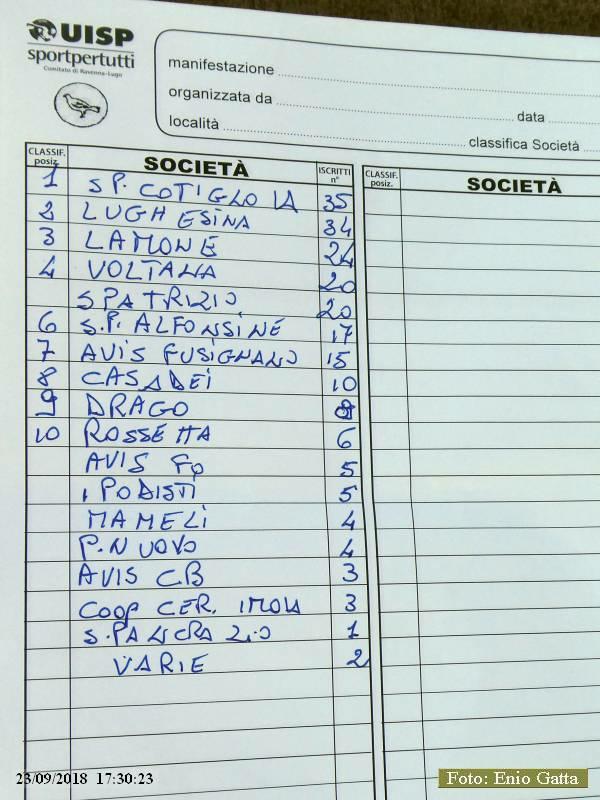 UISP
sportpertutti
Comitato di Ravenna-Lugo
manifestazione
organizzata da
data
località
classifica Società
CLASSIF. posiz. SOCIETÀ ISCRITTI n° CLASSIF. posiz. SOCIETÀ
1 SP. COTIGLO IA 35
2 LUGHESINA 34
3 LAMONE 24
4 VOLTANA 20
S PATRIZIO 20
6 S.P. ALFONSINE 17
7 AVIS FUSIGNANO 15
8 CASADEI 10
9 DRAGO 8
10 ROSSETTA 6
AVIS FO 5
I PODISTI 5
MAMELI 4
P. NUOVO 4
AVIS CB 3
COOP CER. IMOLA 3
S. PANCRAZIO 1
VARIE 2
23/09/2018 17:30:23
Foto: Enio Gatta